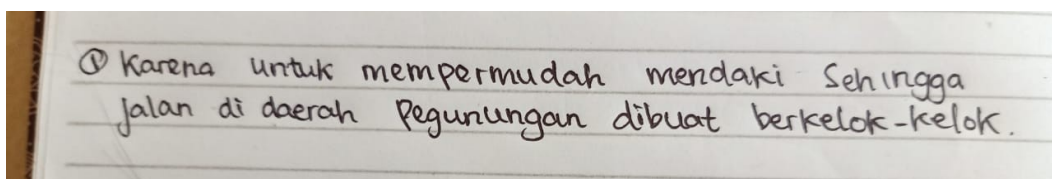 ① Karena untuk mempermudah mendaki Sehingga
jalan di daerah pegunungan dibuat berkelok-kelok.